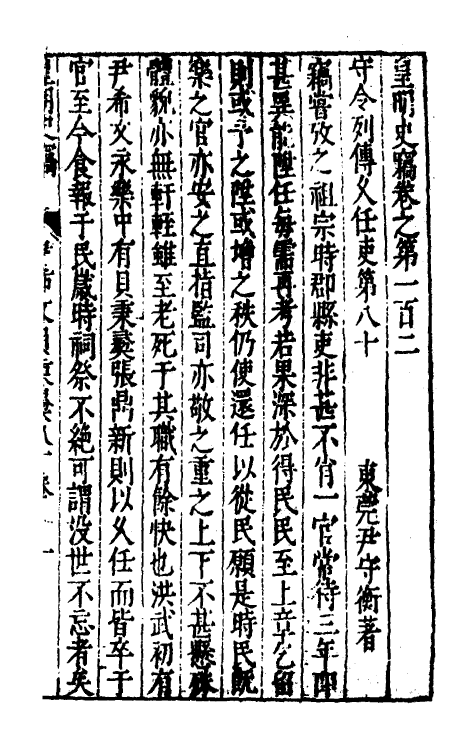 皇明史竊卷之第一百二
守令列傳久任吏第八十　東莞尹守衡著
竊嘗攷之祖宗時郡縣吏非甚不肖一官當待三年即
甚異能陞任每需再考若果深於得民民至上章乞留
則或予之陞或增之秩仍使還任以從民願是時民既
樂之官亦安之直指監司亦敬之重之上下不甚懸殊
體貌亦無軒輊雖至老死于其職有餘快也洪武初有
尹希文永樂中有貝秉彝張鼎新則以久任而皆卒于
官至今食報于民歲時祠祭不絕可謂沒世不忘者矣
皇明史竊